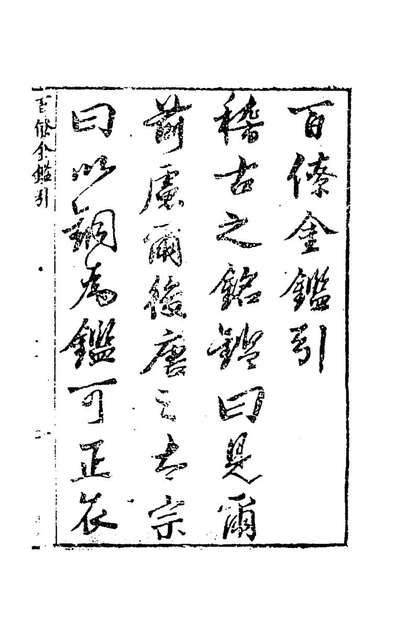 百僚金鑑引
稽古之銘鑑曰見爾
前慮爾後唐之太宗
曰以銅為鑑可正衣
百僚金鑑引
一